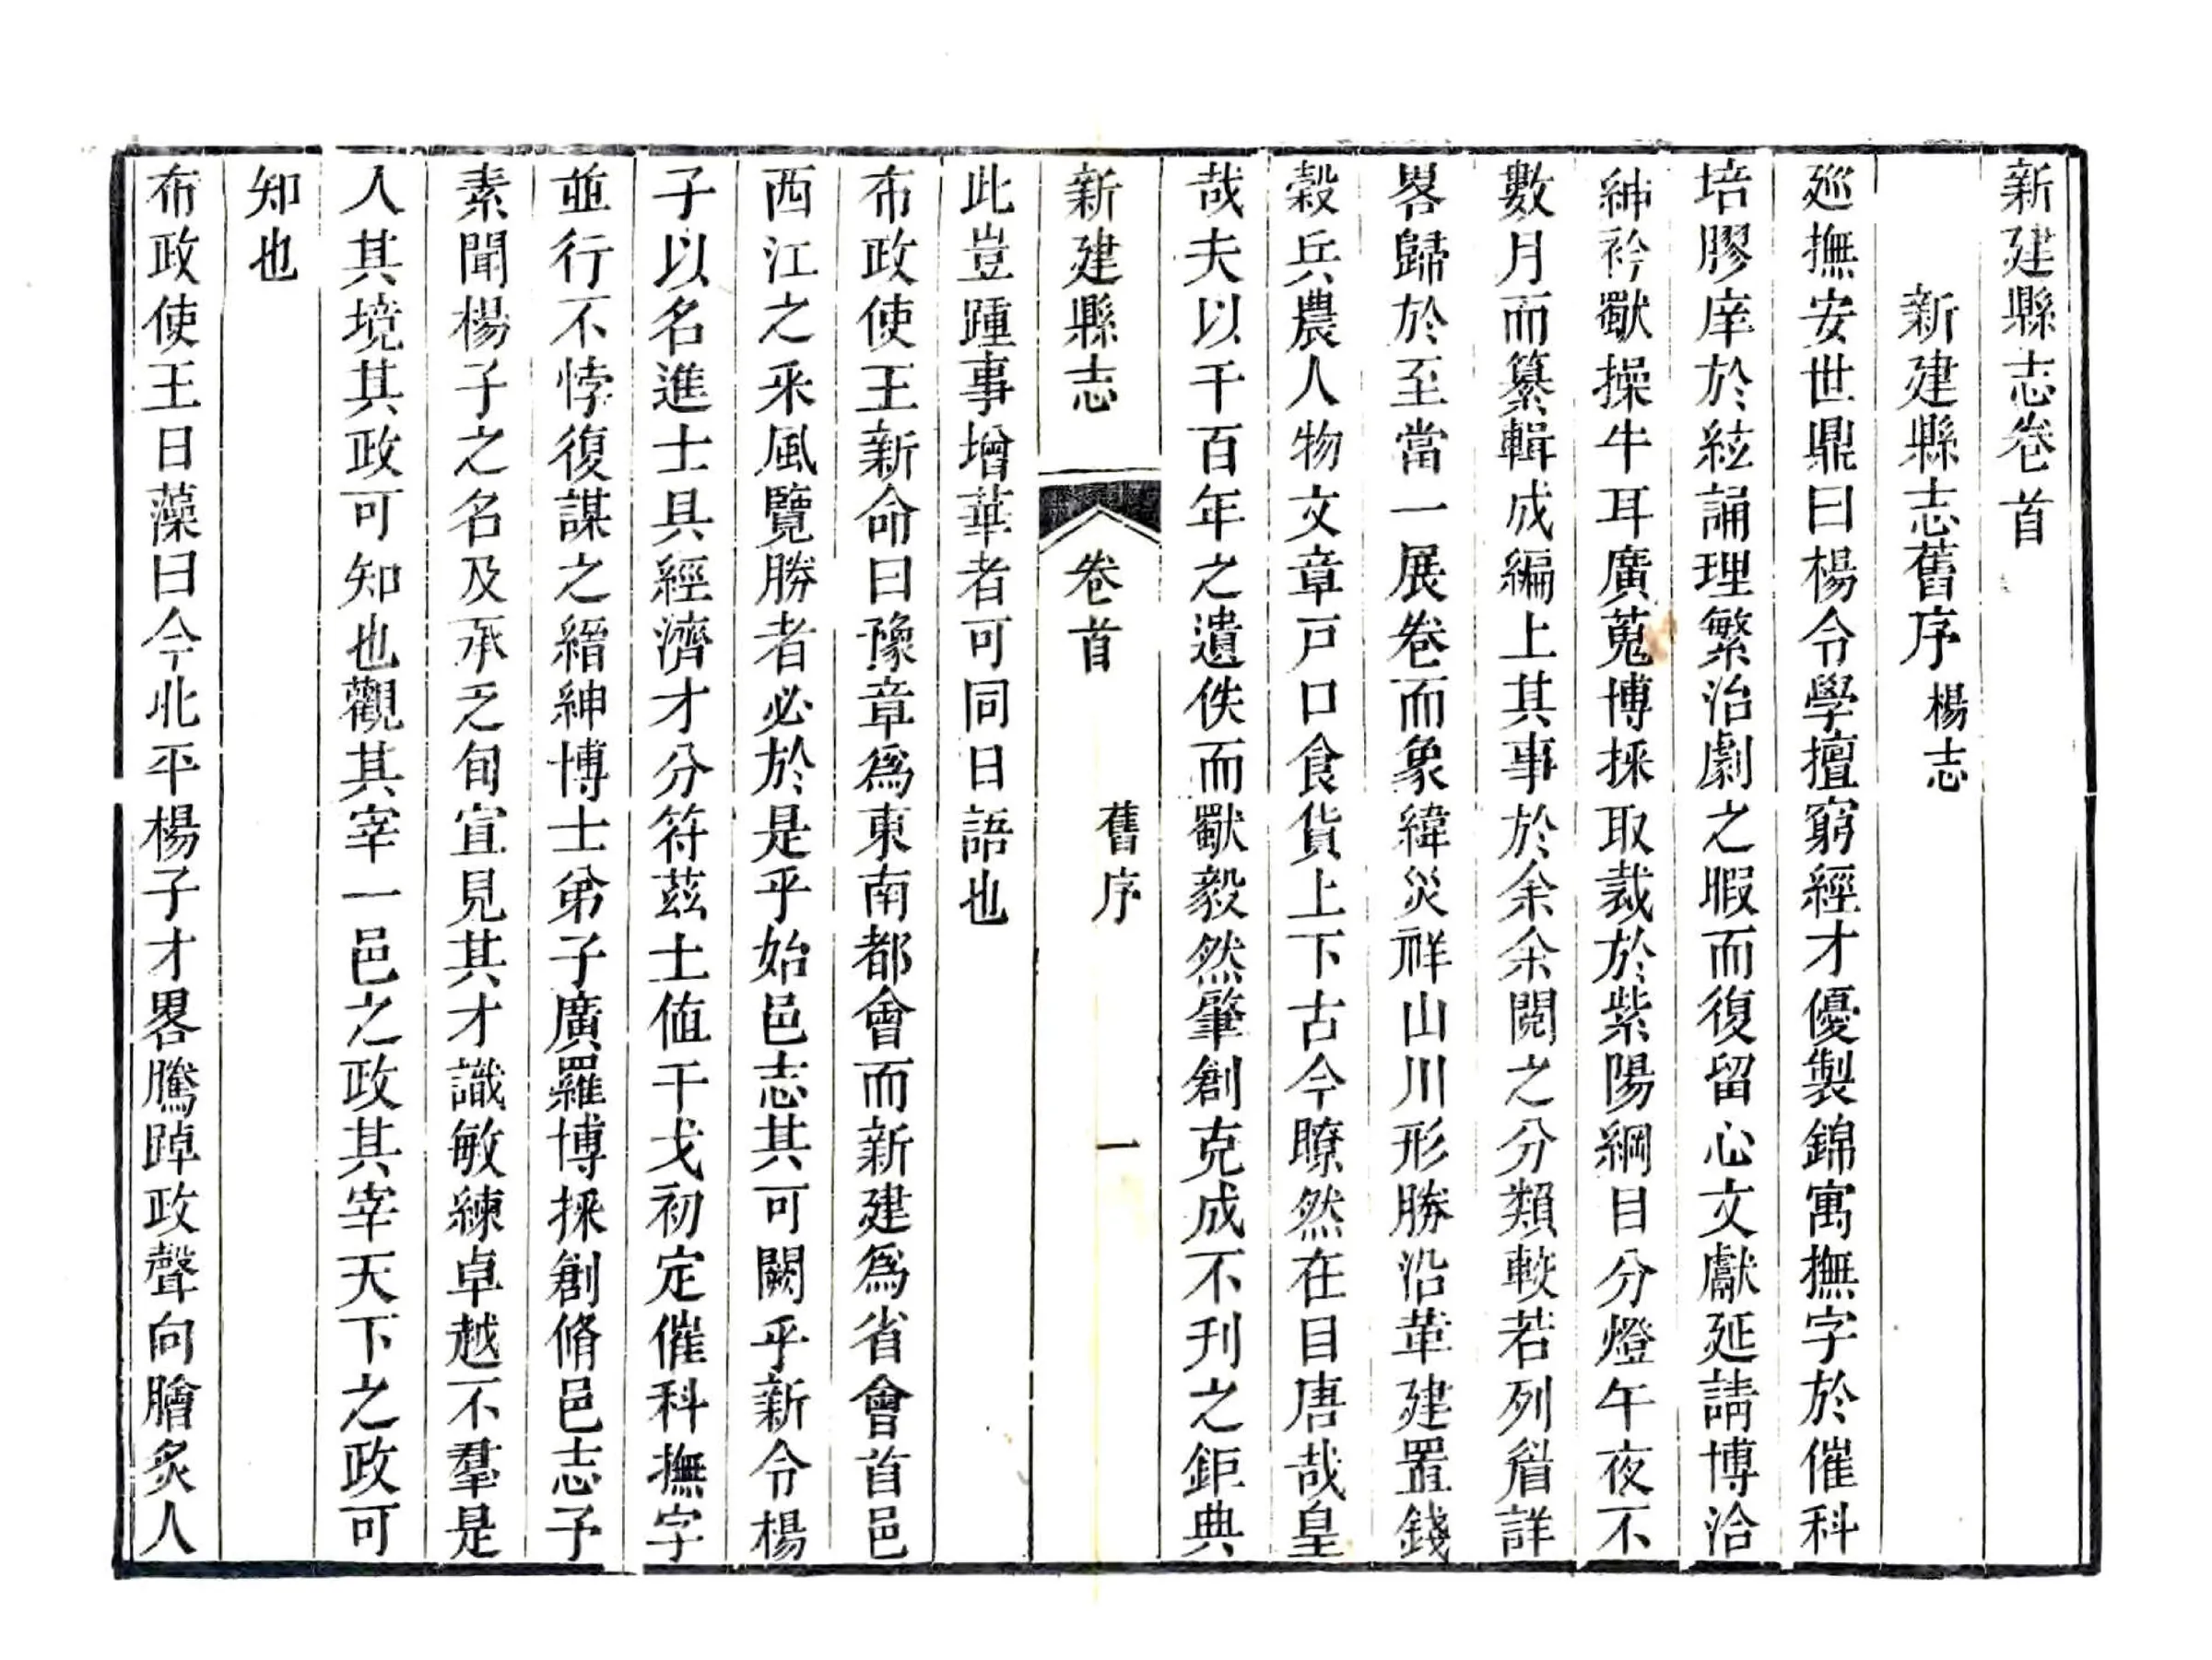 新建縣志卷首
新建縣志舊序楊志
廵撫安世鼎曰楊令學擅窮經才優製錦寓撫字於催科
培膠庠於絃誦理繁治劇之暇而復留心文獻延請博洽
紳衿歠操牛耳廣蒐博採取裁於紫陽綱目分燈午夜不
數月而纂輯成編上其事於余余閱之分類較若列眉詳
畧歸於至當一展卷而象緯災祥山川形勝沿革建置錢
穀兵農人物文章戸口食貨上下古今瞭然在目唐哉皇
哉夫以千百年之遺佚而歠毅然肇創克成不刊之鉅典
新建縣志 卷首 舊序 一
此豈踵事增華者可同日語也
布政使王新命曰豫章爲東南都會而新建爲省會首邑
西江之釆風覽勝者必於是乎始邑志其可闕乎新令楊
子以名進士具經濟才分符茲土値干戈初定催科撫字
並行不悖復謀之縉紳博士弟子廣羅博採創脩邑志予
素聞楊子之名及承乏旬宣見其才識敏練卓越不羣是
人其境其政可知也觀其宰一邑之政其宰天下之政可
知也
布政使王日藻曰今北平楊子才畧騰踔政聲向膾炙人